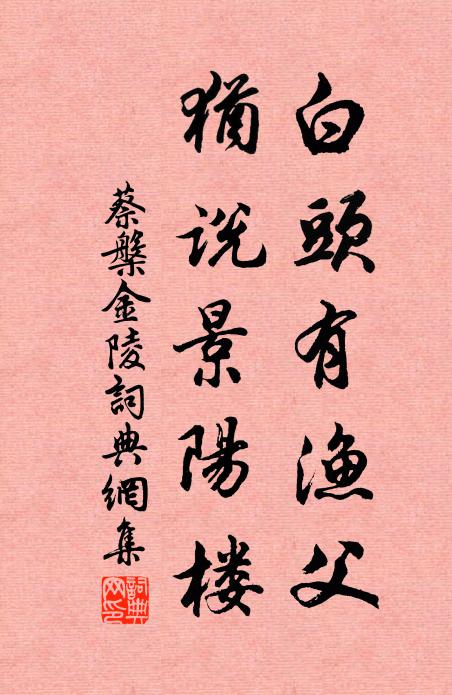 白頭有漁父
猶説景陽楼
蔡槃金陵詞典網集
詞典网印